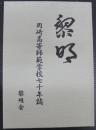 黎明
岡崎高等師範学校七十年誌
黎明会